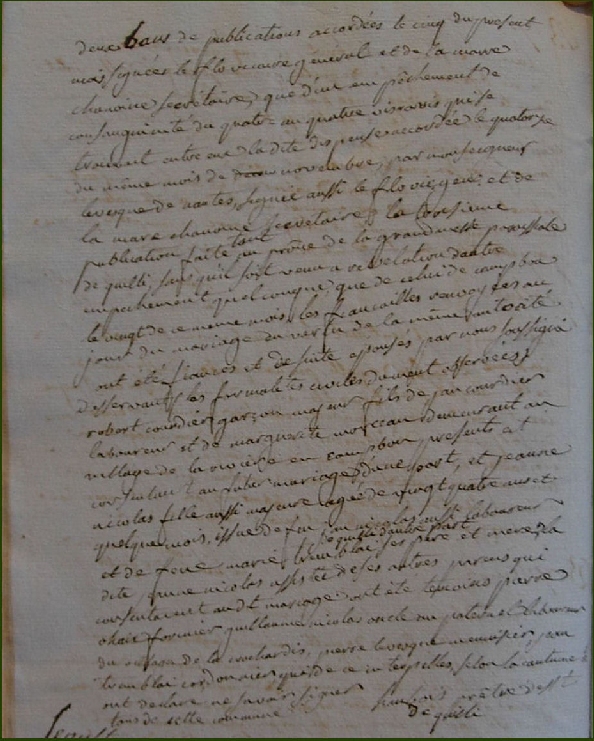 deux bans de publications accordées le cinq du present
mois signées le flo vicaire général et de la marre
chanoine secrétaire, que d'un empêchement de
consanguinité du quatre au quatre
trouvent entre eux la dite dispense accordée le quatorze
du même mois de novembre, par monseigneur
levesque de nantes, signée aussi le flo vic. gen. et de
la mare chanoine secretaire, la troisieme
publication faite tant au prône de la grandmesse paroissiale
de quilli, sans qu'il soit venu a revelation dautre
empechement quelconque, que de celui de campbon
le vingt de ce meme mois, les fiancailles renvoyées au
jour du mariage en vertu de la même autorité
ont été fiancés et de suite epousés par nous soussigné
desservant, les formalites civiles dument observées,
robert courdier garçon majeur fils de jan courdier
laboureur et de marguerite moreau demeurant au
village de la riviere en campbon presents et
consentant au futur mariage d'une part, et jeanne
nicolas fille aussi majeure agée de vingt quatre ans et
quelques mois, issue de feu nicolas aussi laboureur
et de feue marie tremblai ses pere et mere, la
de quilli d'autre part
dite jeanne nicolas assistée de ses autres parens qui
consentent audit mariage. ont été temoins pierre
fournier guillaume nicolas oncle paternel laboureur
du de la pierre levesque menuisier, jan
tremblai cordonnier qui de ce interpellés, selon la coutume
ont declaré ne savoir signer
de cette commune prêtre dess.t
de quilli